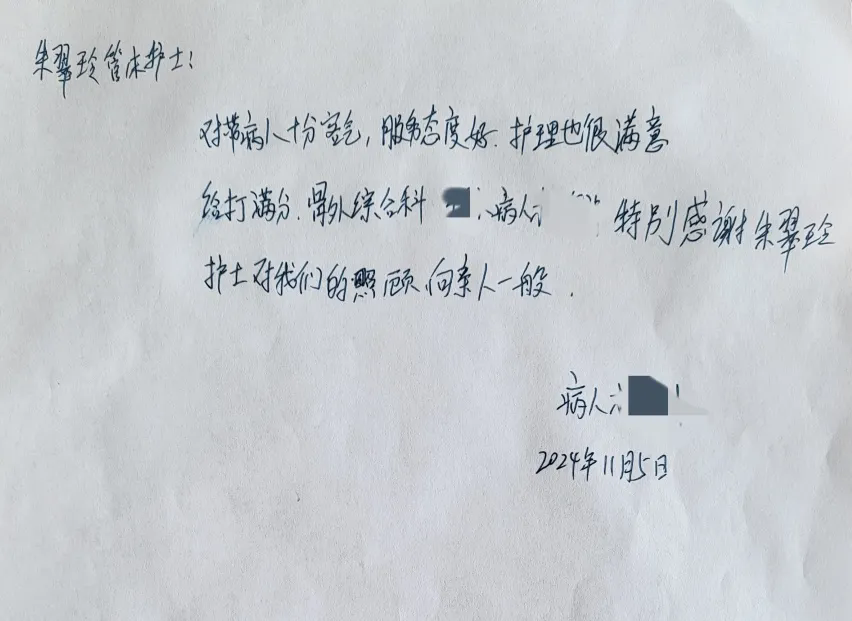 朱翠玲管床护士：
对带病人十分客气，服务态度好．护理也很满意
给打满分．骨外综合科 病人 特别感谢朱翠玲
护士对我们的照顾向亲人一般．
病人
2024年11月5日